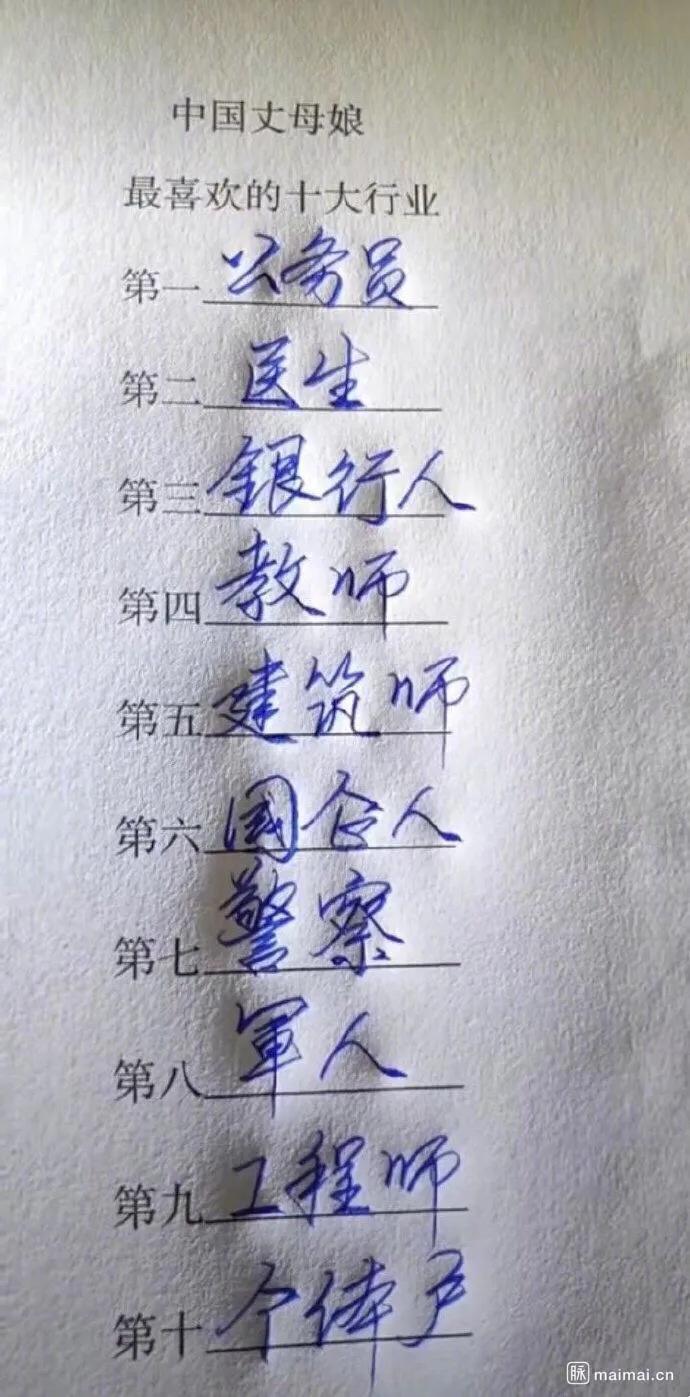 中国丈母娘
最喜欢的十大行业
第一公务员
第二医生
第三银行人
第四教师
第五建筑师
第六國企人
第七警察
第八軍人
第九工程师
第十个体户
脉 maimai.cn